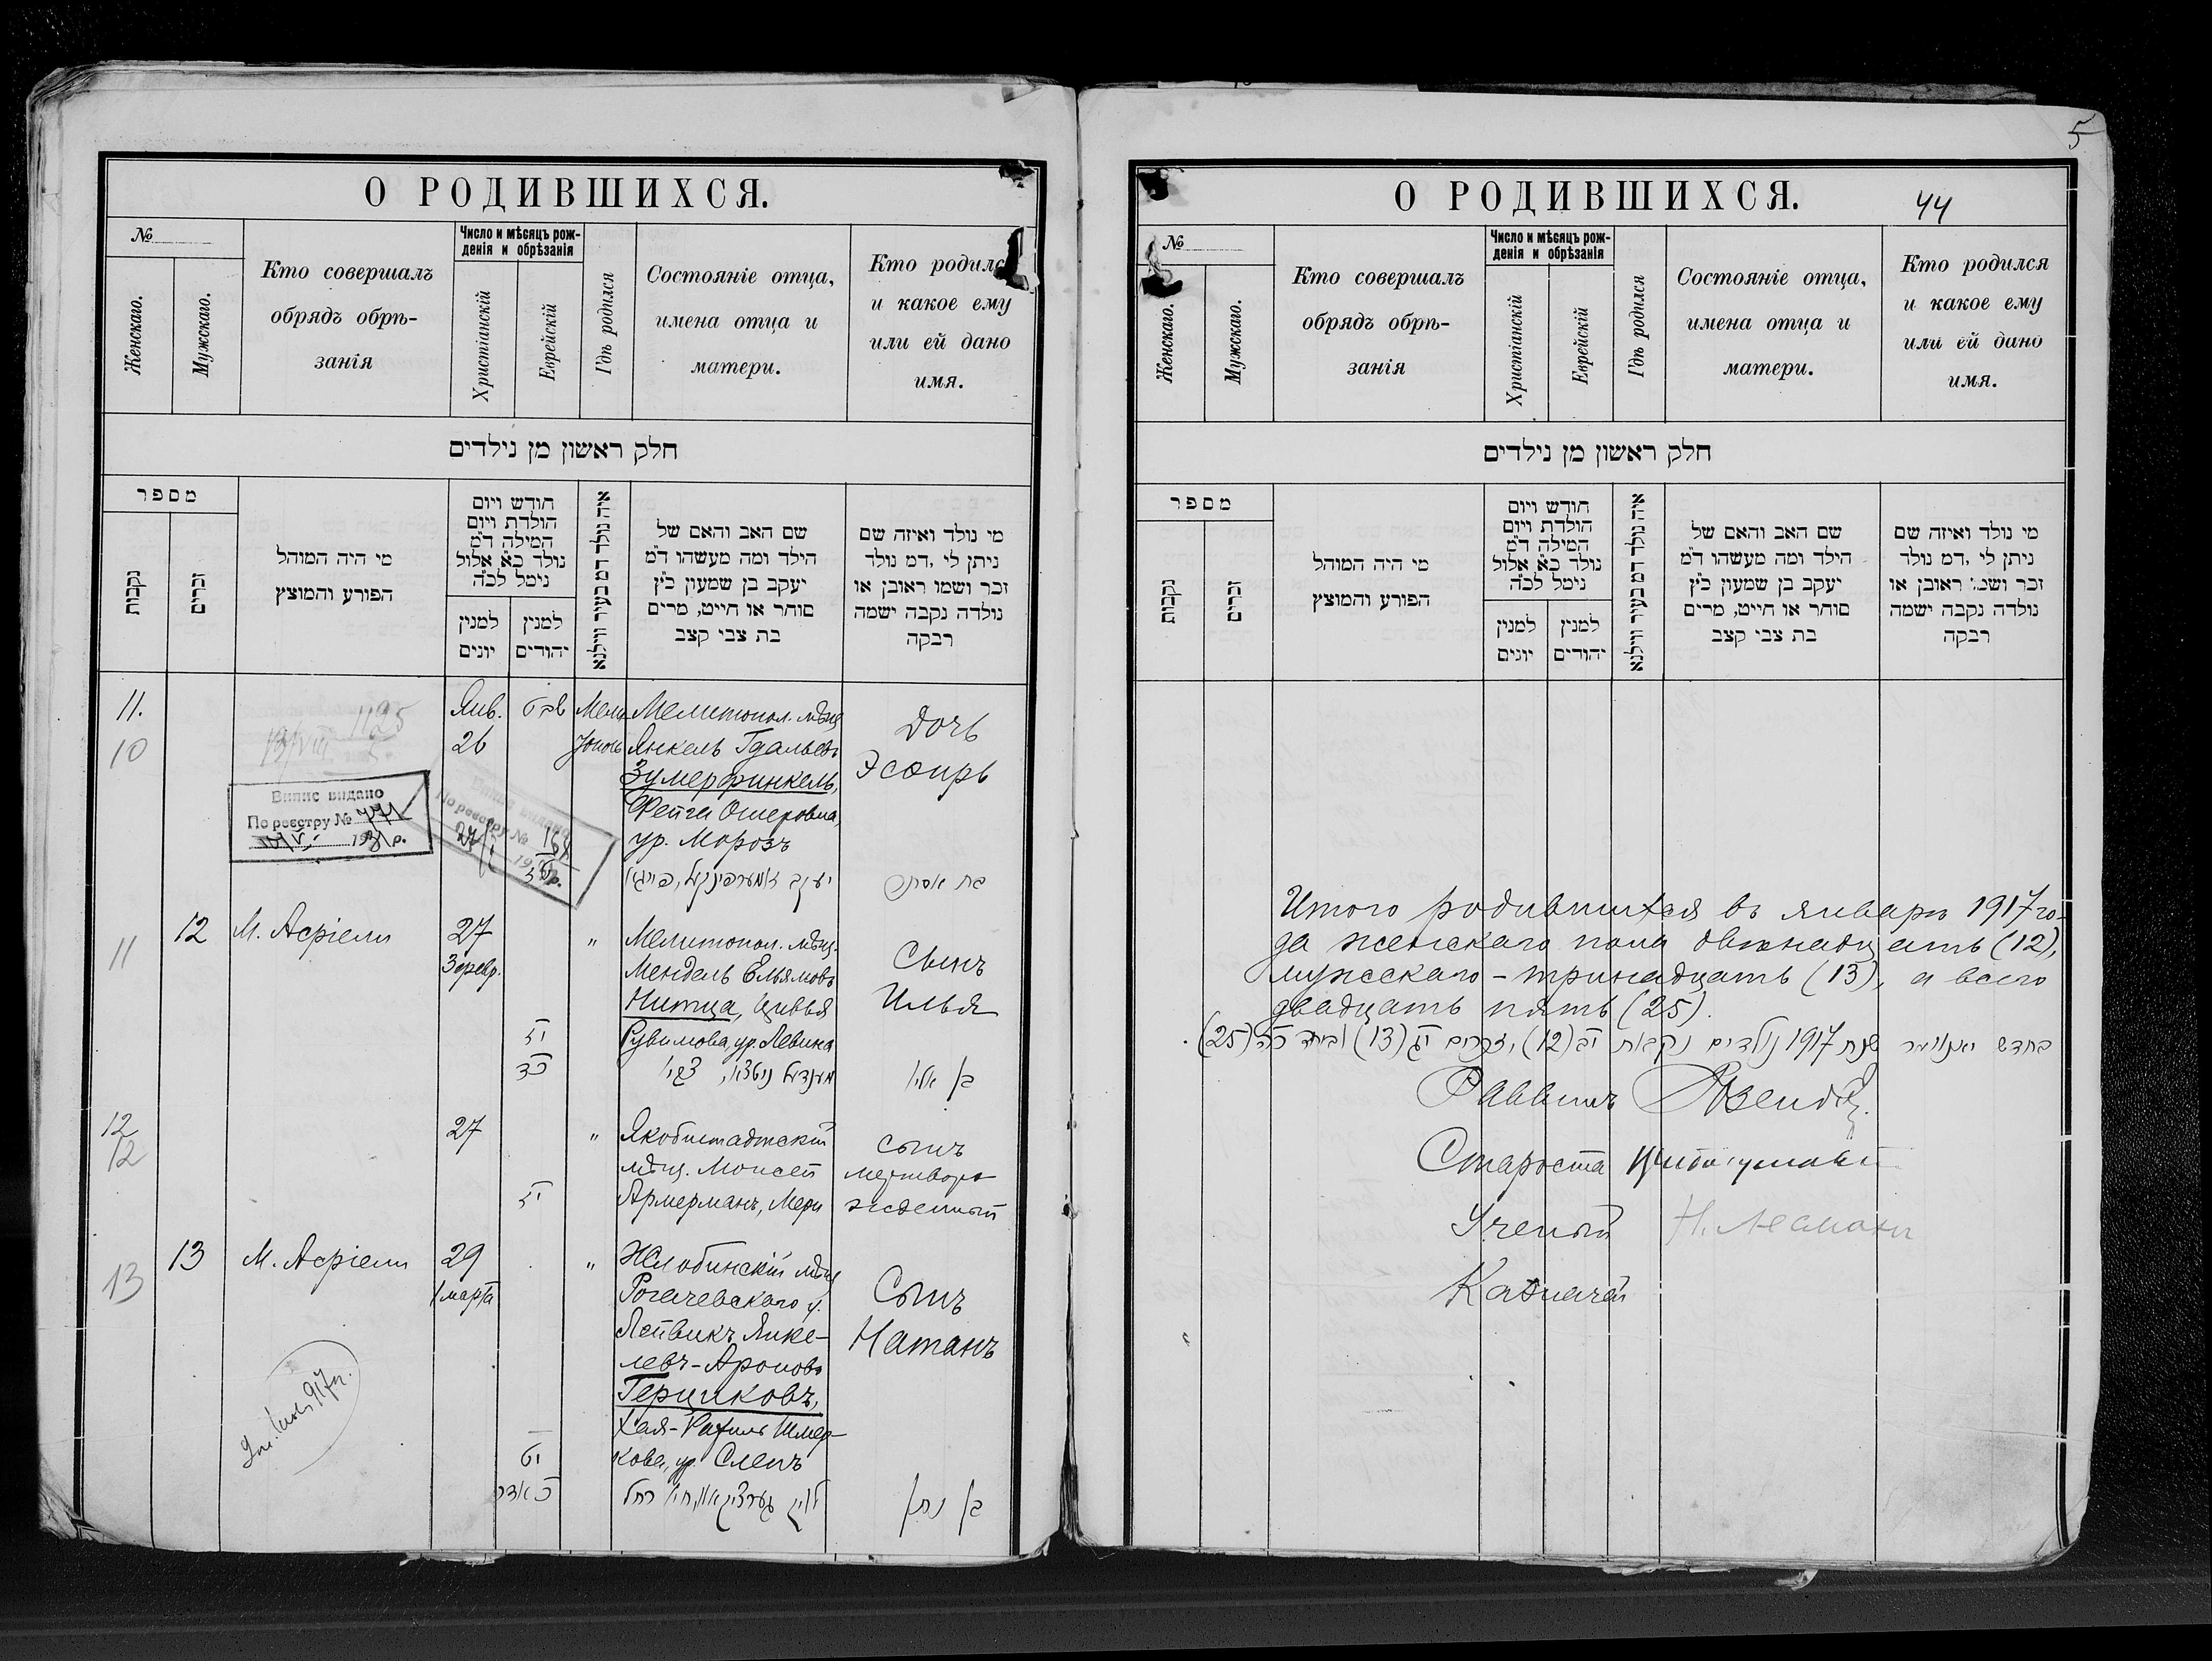 О РОДИВШИХСЯ.
№
Женскаго.
Мужскаго.
Кто совершалъ
обрядъ обрѣ-
занія
Число и мѣсяцъ рож-
денія и обрѣзанія
Христіанскій
Еврейскій
Гдѣ родился
Состояніе отца,
имена отца и
матери.
Кто родился
и какое ему
или ей дано
имя.
חלק ראשון מן נילדים
מספר
נקבות
זכרים
מי היה המוהל
הפורע והמוצץ
חודש ויום
הולדת ויום
המילה ד״מ
נולד כא אלול
נימל לכ״ה
למנין
יונים
למנין
יהודים
איה נולד דמ בעיר ווילנא
שם האב והאם של
הילד ומה מעשהו ד״מ
יעקב בן שמעון כ״ץ
סוחר או חייט, מרים
בת צבי קצב
מי נולד ואיזה שם
ניתן לי ,דמ נולד
זכר ושמו ראובן או
נולדה נקבה ישמה
רבקה
11.
10
1195
Янв.
26
שבט
Мели
тополь
Мелитопол. мѣщ
Янкель Гдальевъ
Зумерфинкель,
Фейга Ошеровна,
ур. Морозъ
Дочь
Эсѳирь
Випис видано
По реєстру № 771
1931р.
Випис видано
По реєстру №
יעקב זומערפינקעל, פייגא
בת אסתר
11
12
М. Асріели
27
3 февр.
"
Мелитопол. мѣщ.
Мендель Ельямовъ
Нитца, Цивья
Рувимова, ур. Левина
Сынъ
Илья
יז
כד
מענדעל ניטצא, צביא
בן אליה
12
12
27
"
Якобштадтскій
мѣщ. Моисей
Армерманъ, Мери
сынъ
мертворо
жденный
יז
13
13
М. Асріели
29
1 марта
"
Жлобинскій мѣщ
Рогачевскаго у.
Лейвикъ Янке-
левъ-Ароновъ
Герциковъ,
Хая-Рахиль Шмер-
кова, ур. Слепъ
Сынъ
Натанъ
יט
כ אדר
לוויק גערציקאוו, חיה רחל
בן נתן
917г.
5
О РОДИВШИХСЯ.
44
№
Женскаго.
Мужскаго.
Кто совершалъ
обрядъ обрѣ-
занія
Число и мѣсяцъ рож-
денія и обрѣзанія
Христіанскій
Еврейскій
Гдѣ родился
Состояніе отца,
имена отца и
матери.
Кто родился
и какое ему
или ей дано
имя.
חלק ראשון מן נילדים
מספר
נקבות
זכרים
מי היה המוהל
הפורע והמוצץ
חודש ויום
הולדת ויום
המילה ד״מ
נולד כא אלול
נימל לכ״ה
למנין
יונים
למנין
יהודים
איה נולד דמ בעיר ווילנא
שם האב והאם של
הילד ומה מעשהו ד״מ
יעקב בן שמעון כ״ץ
סוחר או חייט, מרים
בת צבי קצב
מי נולד ואיזה שם
ניתן לי ,דמ נולד
זכר ושמו ראובן או
נולדה נקבה ישמה
רבקה
Итого родившихся въ январѣ 1917 го-
да женскаго пола двѣнадцать (12),
мужескаго - тринадцать (13), а всего
двадцать пять (25).
בחדש יאנוואר שנת 1917 נולדים נקבות יב (12), זכרים יג (13) וביחד כה (25).
Раввинъ
Староста
Ученый
Казначей